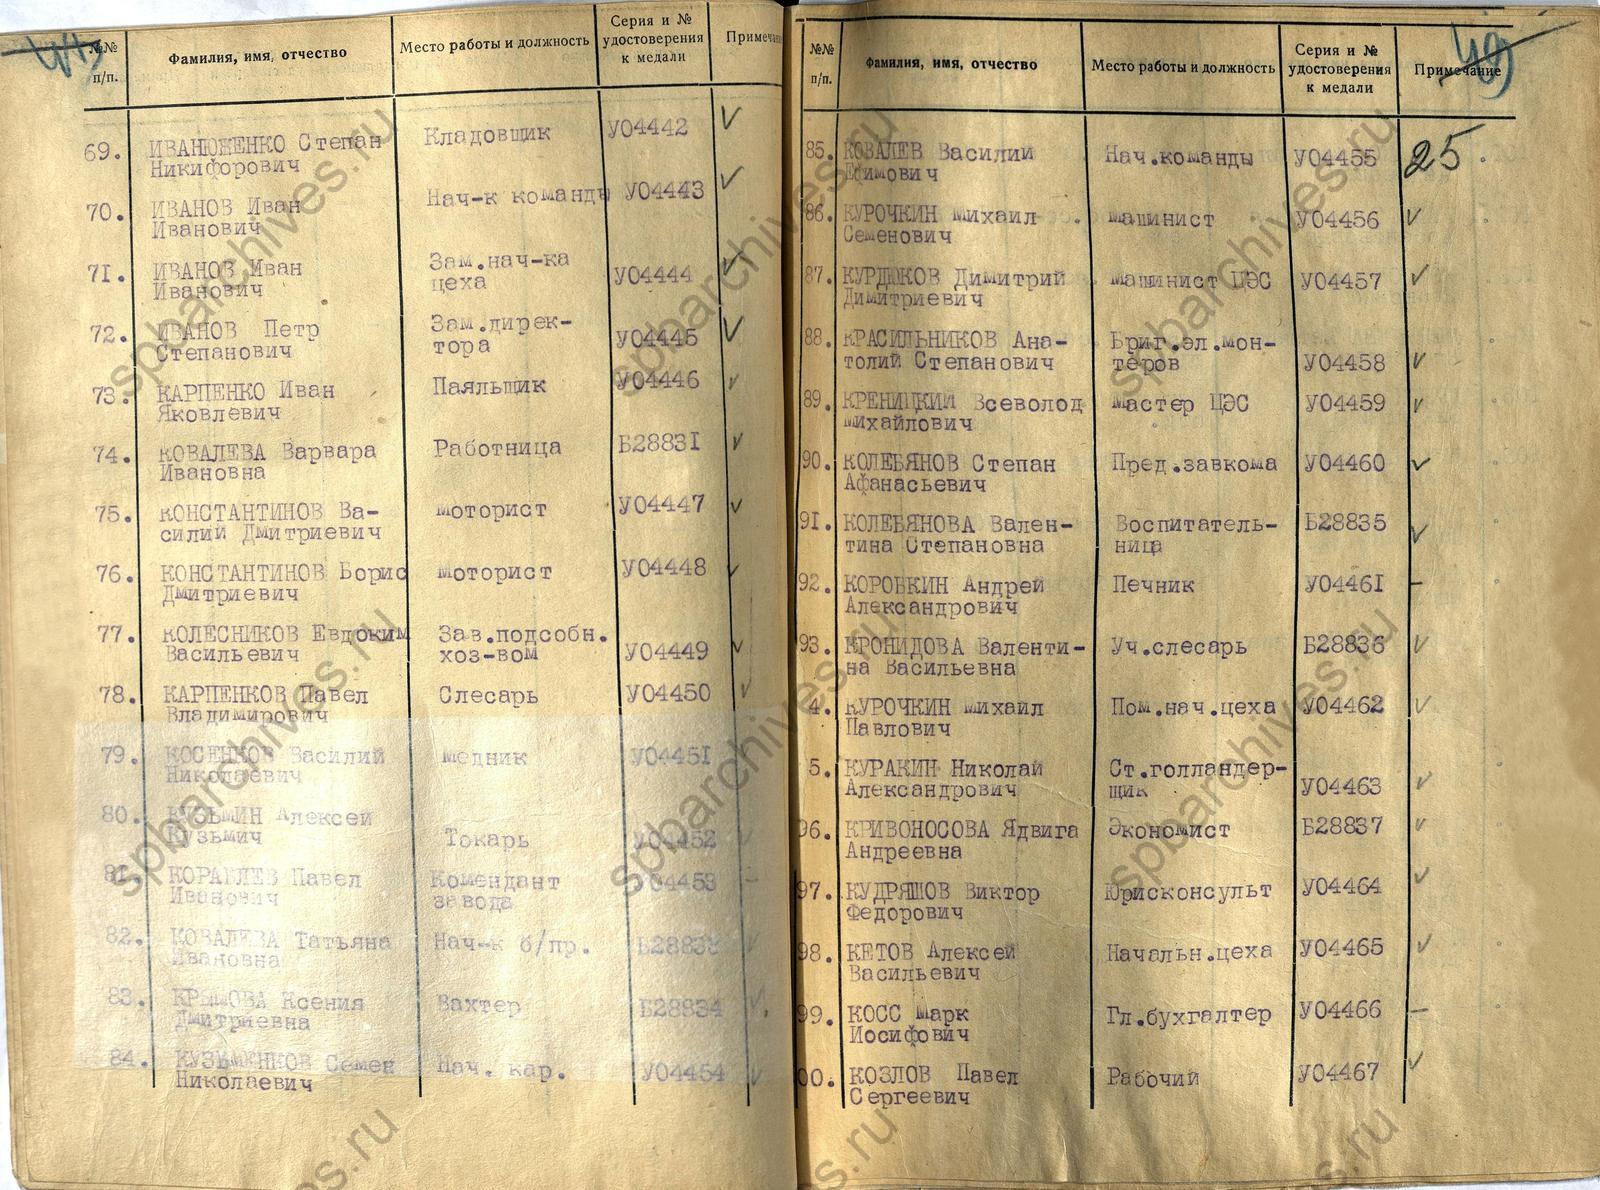 №№ п/п. Фамилия, имя, отчество Место работы и должность Серия и № удостоверения к медали
69. Степан Кладовщик У04442
Никифорович
70. ИВАНОВ Иван Нач-к команды У04443
Иванович
71. ИВАНОВ Иван Зам.нач-ка У04444
Иванович цеха
72. ИВАНОВ Петр Зам.дирек- У04445
Степанович тора
73. КАРПЕНКО Иван Паяльщик У04446
Яковлевич
74. КОВАЛЕВА Варвара Работница Б28831
Ивановна
75. КОНСТАНТИНОВ Ва- Моторист У04447
силий Дмитриевич
76. КОНСТАНТИНОВ Борис Моторист У04448
Дмитриевич
77. КОЛЕСНИКОВ Евдоким Зав.подсобн. У04449
Васильевич хоз-вом
78. КАРПЕНКОВ Павел Слесарь У04450
Владимирович
79. КОСЕНКОВ Василий Медник У04451
Николаевич
80. КУЗЬМИН Алексей
Кузьмич Токарь У04452
81. КОРАБЛЕВ Павел Комендант У04453
Иванович завода
82. КОВАЛЕВА Татьяна Нач-к б/пр.
Ивановна
83. КРЫМОВА Ксения Вахтер Б28834
Дмитриевна
84. КУЗЬМЕНКОВ Семен Нач. кар. У04454
Николаевич
№№ п/п. Фамилия, имя, отчество Место работы и должность Серия и № удостоверения к медали Примечание
49
85. КОВАЛЕВ Василий Нач.команды У04455 25
Ефимович
86. КУРОЧКИН Михаил Машинист У04456
Семенович
87. КУРДЮКОВ Димитрий Машинист ЦЭС У04457
Димитриевич
88. КРАСИЛЬНИКОВ Ана- Бриг.эл.мон-
толий Степанович теров У04458
89. КРЕНИЦКИЙ Всеволод Мастер ЦЭС У04459
Михайлович
90. КОЛЕБЯНОВ Степан Пред.завкома У04460
Афанасьевич
91. КОЛЕБЯНОВА Вален- Воспитатель- Б28835
тина Степановна ница
92. КОРОБКИН Андрей Печник У04461
Александрович
93. КРОНИДОВА Валенти- Уч.слесарь Б28836
на Васильевна
4. КУРОЧКИН Михаил Пом.нач.цеха У04462
Павлович
5. КУРАКИН Николай Ст.голландер-
Александрович щик У04463
96. КРИВОНОСОВА Ядвига Экономист Б28837
Андреевна
97. КУДРЯШОВ Виктор Юрисконсульт У04464
Федорович
98. КЕТОВ Алексей Начальн.цеха У04465
Васильевич
99. КОСС Марк Гл.бухгалтер У04466
Иосифович
00. КОЗЛОВ Павел Рабочий У04467
Сергеевич
spbarchives.ru
spbarchives.ru
spbarchives.ru
spbarchives.ru
spbarchives.ru
spbarchives.ru